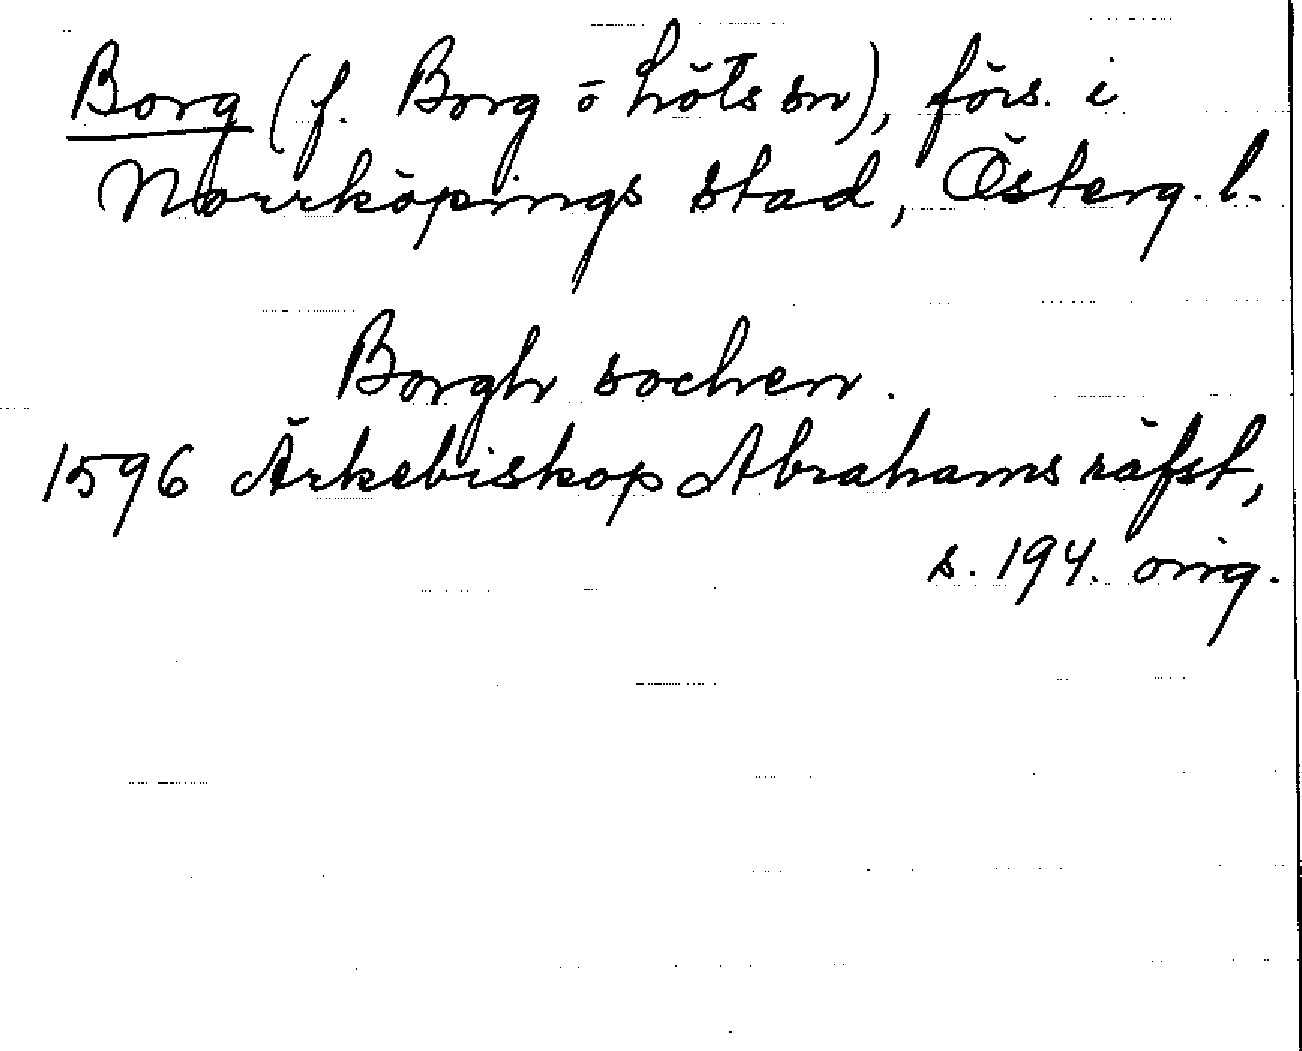 Borg (f. Borg o Löts sn), förs. i
Norrköpings stad, Österg. l.
Borgh sochen.
1596 Ärkebiskop Abrahams räfst,
s. 194. orig.